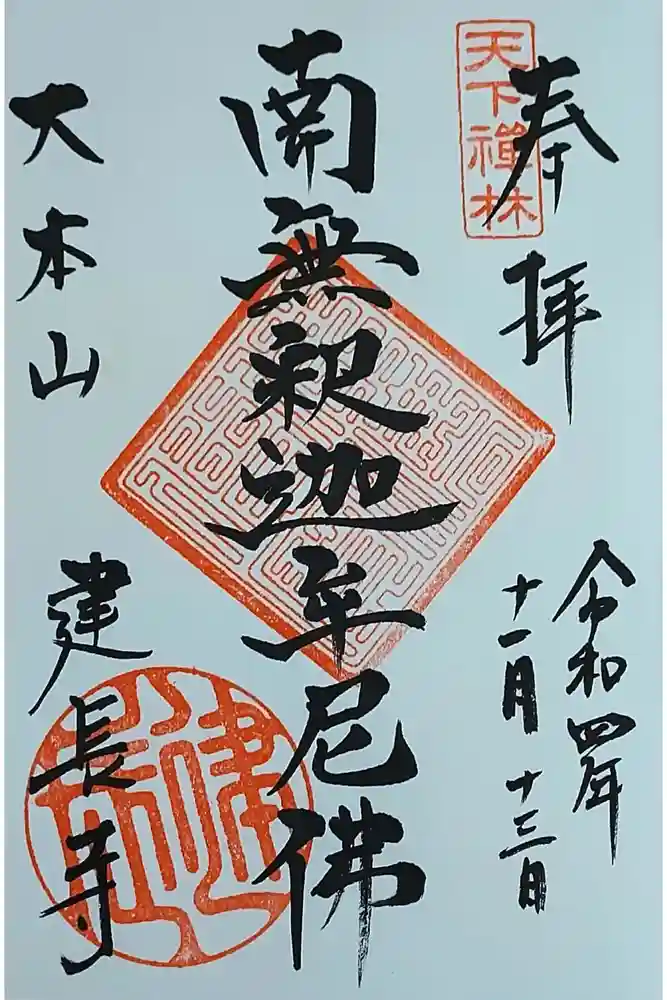 天下禅林
奉拝
令和四年
十一月十三日
南無釈迦牟尼佛
大本山
建長寺